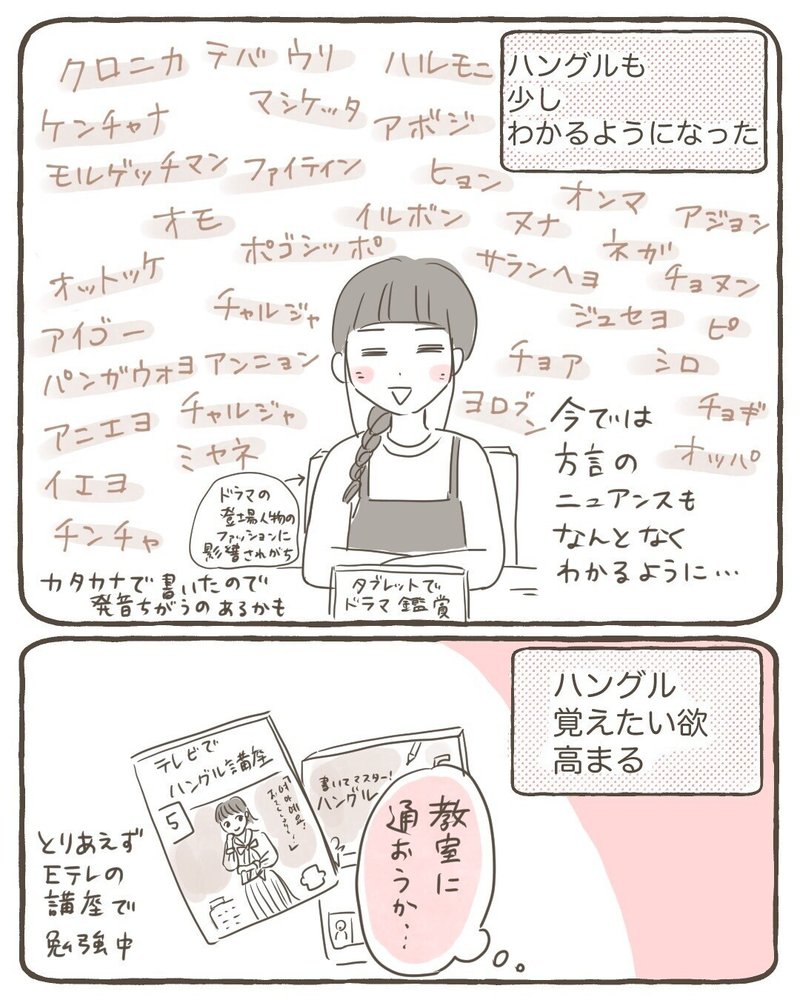 ハングルも
少し
わかるようになった
クロニカ
テバ
ウリ
ハルモニ
ケンチャナ
マシケッタ
アボジ
モルゲッチマン
ファイティン
ヒョン
オンマ
アジョシ
オモ
イルボン
ヌナ
ネガ
ポゴシッポ
サランヘヨ
チョヌン
オットッケ
チャルジャ
ジュセヨ
ピ
アイゴー
パンガウォヨ
アンニョン
チョア
シロ
アニエヨ
チャルジャ
ヨロブン
チョギ
ミヤネ
オッパ
イエヨ
チンチャ
今では
方言の
ニュアンスも
なんとなく
わかるように…
ドラマの
登場人物の
ファッションに
影響されがち
カタカナで書いたので
発音ちがうのあるかも
タブレットで
ドラマ鑑賞
ハングル
覚えたい欲
高まる
テレビで
ハングル講座
5
書いてマスター!
ハングル
教室に
通おうか…
とりあえず
Eテレの
講座で
勉強中